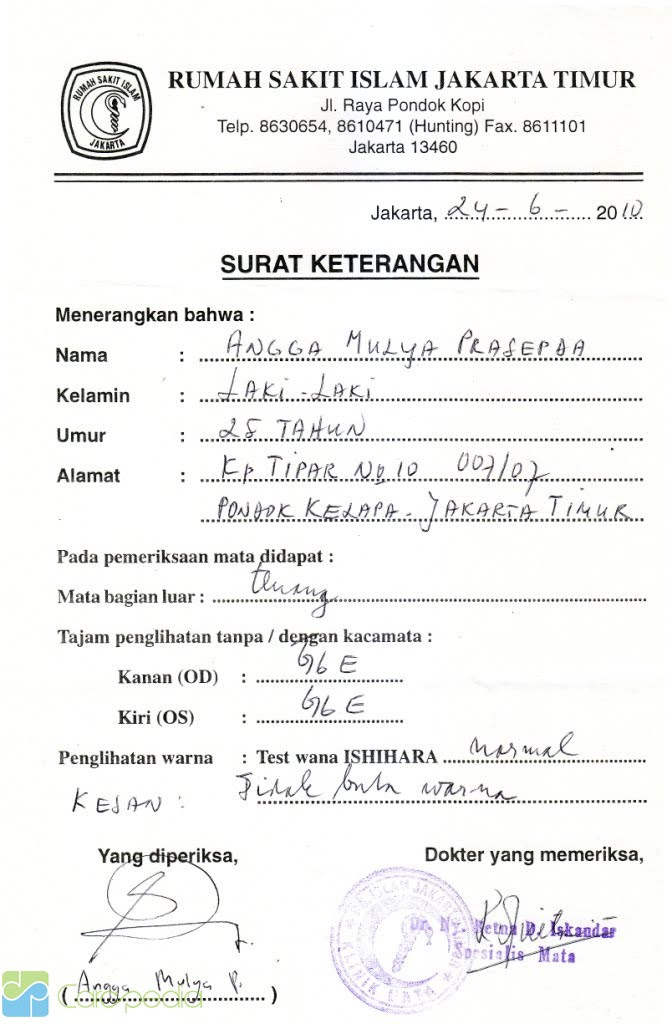 RUMAH SAKIT ISLAM
JAKARTA
RUMAH SAKIT ISLAM JAKARTA TIMUR
Jl. Raya Pondok Kopi
Telp. 8630654, 8610471 (Hunting) Fax. 8611101
Jakarta 13460
Jakarta, 24 - 6 - 2010
SURAT KETERANGAN
Menerangkan bahwa :
Nama : ANGGA MULYA PRASEPDA
Kelamin : LAKI-LAKI
Umur : 25 TAHUN
Alamat : Kp TIPAR No 10 007/07
PONDOK KELAPA - JAKARTA TIMUR
Pada pemeriksaan mata didapat :
Mata bagian luar : tenang
Tajam penglihatan tanpa / dengan kacamata :
Kanan (OD) : 6/6 E
Kiri (OS) : 6/6 E
Penglihatan warna : Test wana ISHIHARA normal
KESAN : Tidak buta warna
Yang diperiksa, Dokter yang memeriksa,
Dr. Ny. Retna D. Iskandar
Spesialis Mata
KLINIK MATA
(Angga Mulya P.)
Cardpedia